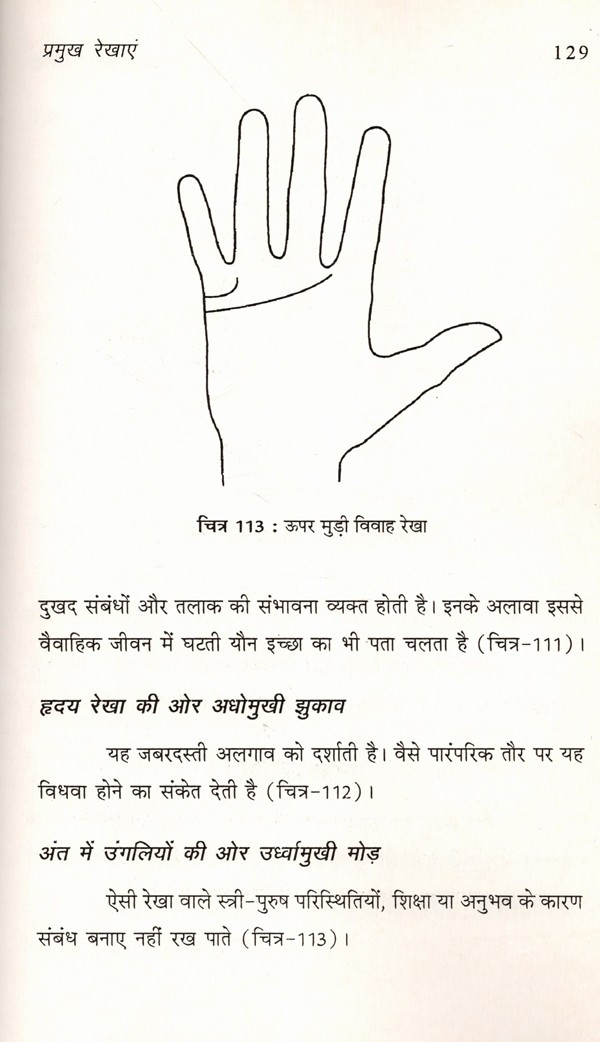 प्रमुख रेखाएं
129
चित्र 113 : ऊपर मुड़ी विवाह रेखा
दुखद संबंधों और तलाक की संभावना व्यक्त होती है। इनके अलावा इससे
वैवाहिक जीवन में घटती यौन इच्छा का भी पता चलता है (चित्र-111)।
हृदय रेखा की ओर अधोमुखी झुकाव
यह जबरदस्ती अलगाव को दर्शाती है। वैसे पारंपरिक तौर पर यह
विधवा होने का संकेत देती है (चित्र-112)।
अंत में उंगलियों की ओर उर्ध्वामुखी मोड़
ऐसी रेखा वाले स्त्री-पुरुष परिस्थितियों, शिक्षा या अनुभव के कारण
संबंध बनाए नहीं रख पाते (चित्र-113)।